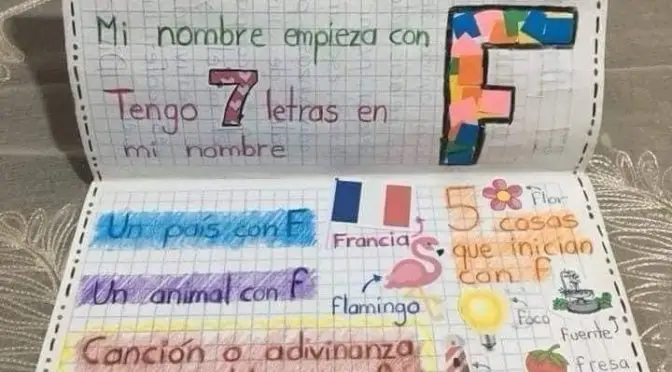 Mi nombre empieza con F
Tengo 7 letras en
mi nombre
Un país con F
Francia
Un animal con f
flamingo
Canción o adivinanza
5 cosas
que inician
con f
Flor
Foco
Fuente
fresa